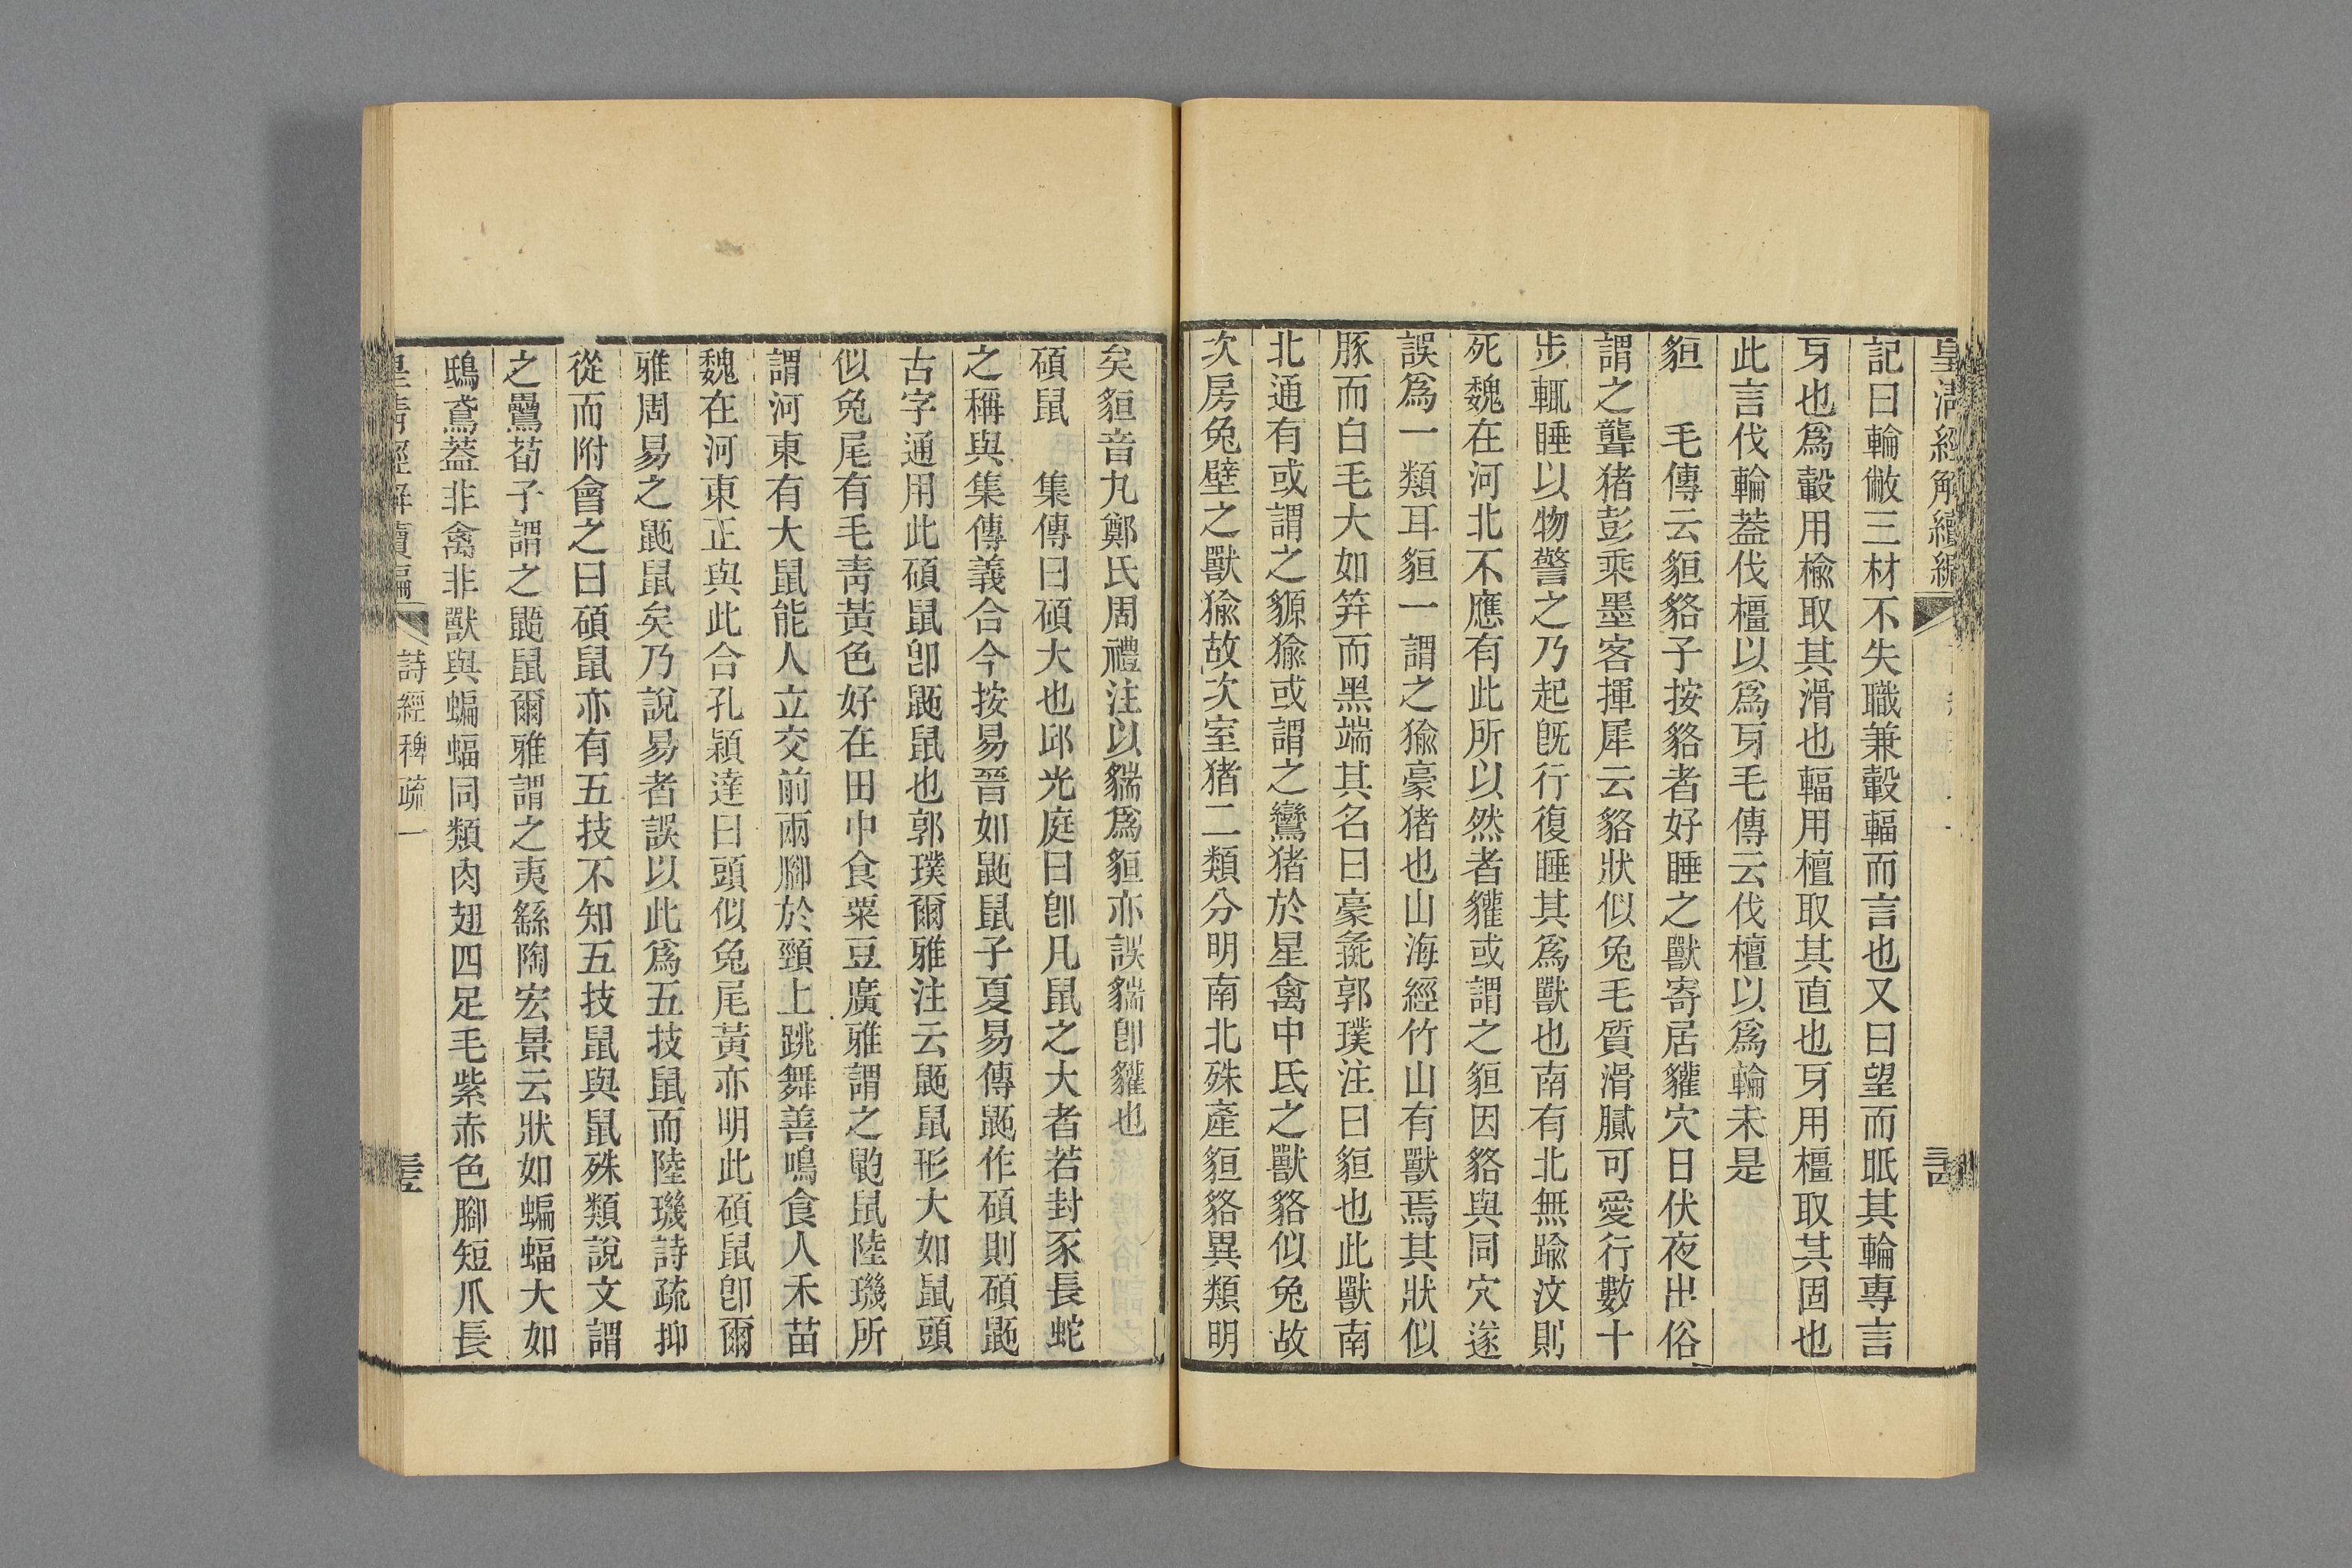 皇清經解續編
記曰輪敝三材不失職兼轂輻而言也又曰望而眂其輪專言
牙也爲轂用楡取其滑也輻用檀取其直也牙用橿取其固也
此言伐輪葢伐橿以爲牙毛傳云伐檀以爲輪未是
貆　毛傳云貆貉子按貉者好睡之獸寄居貛穴日伏夜出俗
謂之聾猪彭乘墨客揮犀云貉狀似兔毛質滑膩可愛行數十
步輒睡以物警之乃起旣行復睡其爲獸也南有北無踰汶則
死魏在河北不應有此所以然者貛或謂之貆因貉與同穴遂
誤爲一類耳貆一謂之㺄豪猪也山海經竹山有獸焉其狀似
豚而白毛大如笄而黑端其名曰豪彘郭璞注曰貆也此獸南
北通有或謂之豲㺄或謂之鸞猪於星禽中氐之獸貉似兔故
次房兔壁之獸㺄故次室猪二類分明南北殊產貆貉異類明
矣貆音九鄭氏周禮注以貒爲貆亦誤貒卽貛也
碩鼠　集傳曰碩大也邱光庭曰卽凡鼠之大者若封豕長蛇
之稱與集傳義合今按易晉如鼫鼠子夏易傳鼫作碩則碩鼫
古字通用此碩鼠卽鼫鼠也郭璞爾雅注云鼫鼠形大如鼠頭
似兔尾有毛靑黃色好在田中食粟豆廣雅謂之鼩鼠陸璣所
謂河東有大鼠能人立交前兩腳於頸上跳舞善鳴食人禾苗
魏在河東正與此合孔穎達曰頭似兔尾黃亦明此碩鼠卽爾
雅周易之鼫鼠矣乃說易者誤以此爲五技鼠而陸璣詩疏抑
從而附會之曰碩鼠亦有五技不知五技鼠與鼠殊類說文謂
之鸓荀子謂之鼯鼠爾雅謂之夷繇陶宏景云狀如蝙蝠大如
鴟鳶葢非禽非獸與蝙蝠同類肉翅四足毛紫赤色腳短爪長
皇清經解續編　詩經稗疏一